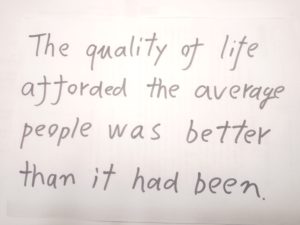 The quality of life
afforded the average
people was better
than it had been.